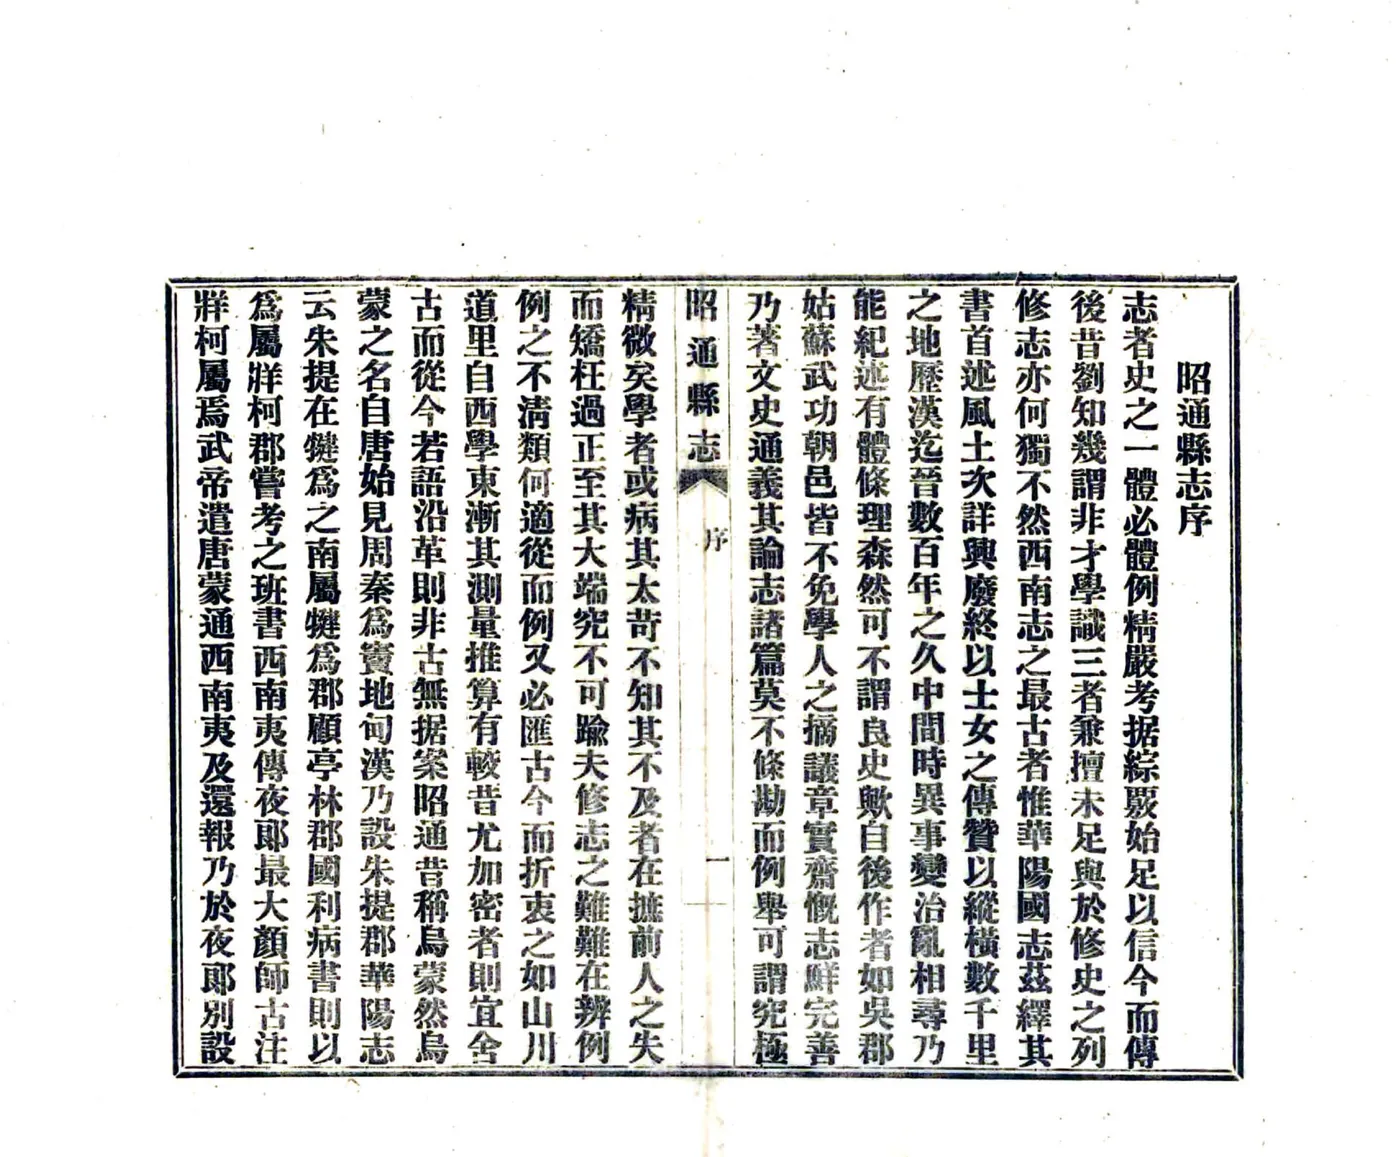 昭通縣志序
志者史之一體必體例精嚴考据綜覈始足以信今而傳
後昔劉知幾謂非才學識三者兼擅未足與於修史之列
修志亦何獨不然西南志之最古者惟華陽國志茲繹其
書首述風土次詳興廢終以士女之傳贊以縱橫數千里
之地歷漢迄晉數百年之久中間時異事變治亂相尋乃
能紀述有體條理森然可不謂良史歟自後作者如吳郡
姑蘇武功朝邑皆不免學人之摘議章實齋慨志鮮完善
乃著文史通義其論志諸篇莫不條勘而例舉可謂究極
昭通縣志
序
一
精微矣學者或病其太苛不知其不及者在摭前人之失
而矯枉過正至其大端究不可踰夫修志之難難在辨例
例之不清類何適從而例又必匯古今而折衷之如山川
道里自西學東漸其測量推算有較昔尤加密者則宜舍
古而從今若語沿革則非古無据案昭通昔稱烏蒙然烏
蒙之名自唐始見周秦為竇地甸漢乃設朱提郡華陽志
云朱提在犍為之南屬犍為郡顧亭林郡國利病書則以
為屬牂柯郡嘗考之班書西南夷傳夜郎最大顏師古注
牂柯屬焉武帝遣唐蒙通西南夷及還報乃於夜郎別設